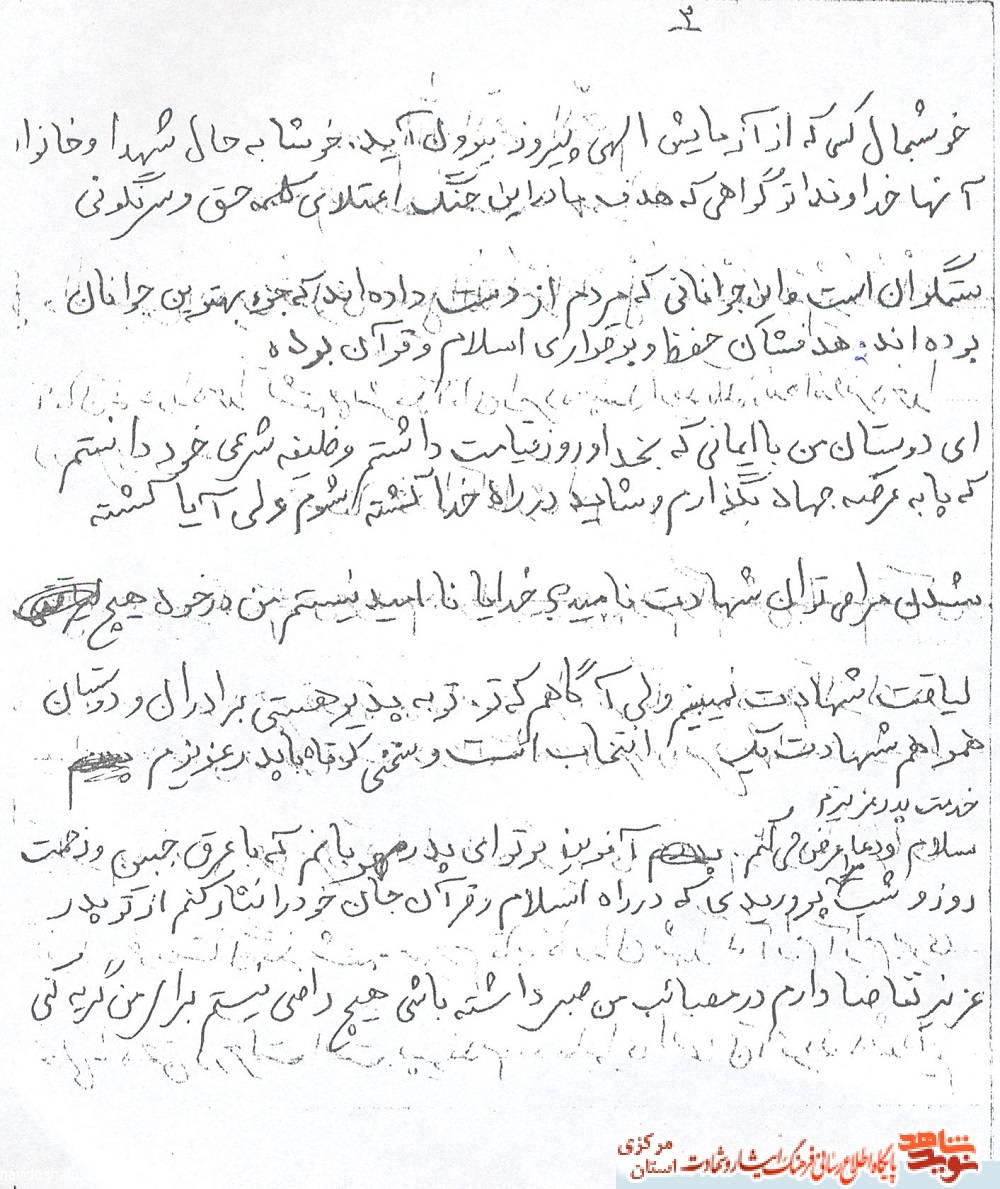 ۳
خوشبحال کسی که از آزمایش الهی پیروز بیرون آید. خوشا به حال شهدا و خانواده
آنها خداوندا تو گواهی که هدف ما در این جنگ اعتلای کلمه حق و سرنگونی
ستمگران است و این جوانانی که مردم از دست داده‌اند که جزء بهترین جوانان
بوده‌اند. هدفشان حفظ و برقراری اسلام و قرآن بوده
ای دوستان من با ایمانی که بخدا و روز قیامت داشتم وظیفه شرعی خود دانستم
که پا به عرصه جهاد بگذارم و شاید در راه خدا کشته شوم ولی آیا کشته
شدن مرا می‌توان شهادت نامید؟ خدایا نا امید نیستم من در خود هیچ
لیاقت شهادت نمیبینم ولی آگاهم که تو. توبه پذیر هستی برادران و دوستان
همراهم شهادت یک انتخاب است و سخنی کوتاه با پدر عزیزم
خدمت پدر عزیزم
سلام و دعا عرض می‌کنم. آفرین بر تو ای پدر مهربانم که با عرق جبین و زحمت
روز و شب پروریدی که در راه اسلام و قرآن جان خود را نثار کنم از تو پدر
عزیز تقاضا دارم در مصائب من صبر داشته باشی هیچ راضی نیستم برای من گریه کنی
نوید شاهد پایگاه اطلاع رسانی فرهنگ ایثار و شهادت استان مرکزی